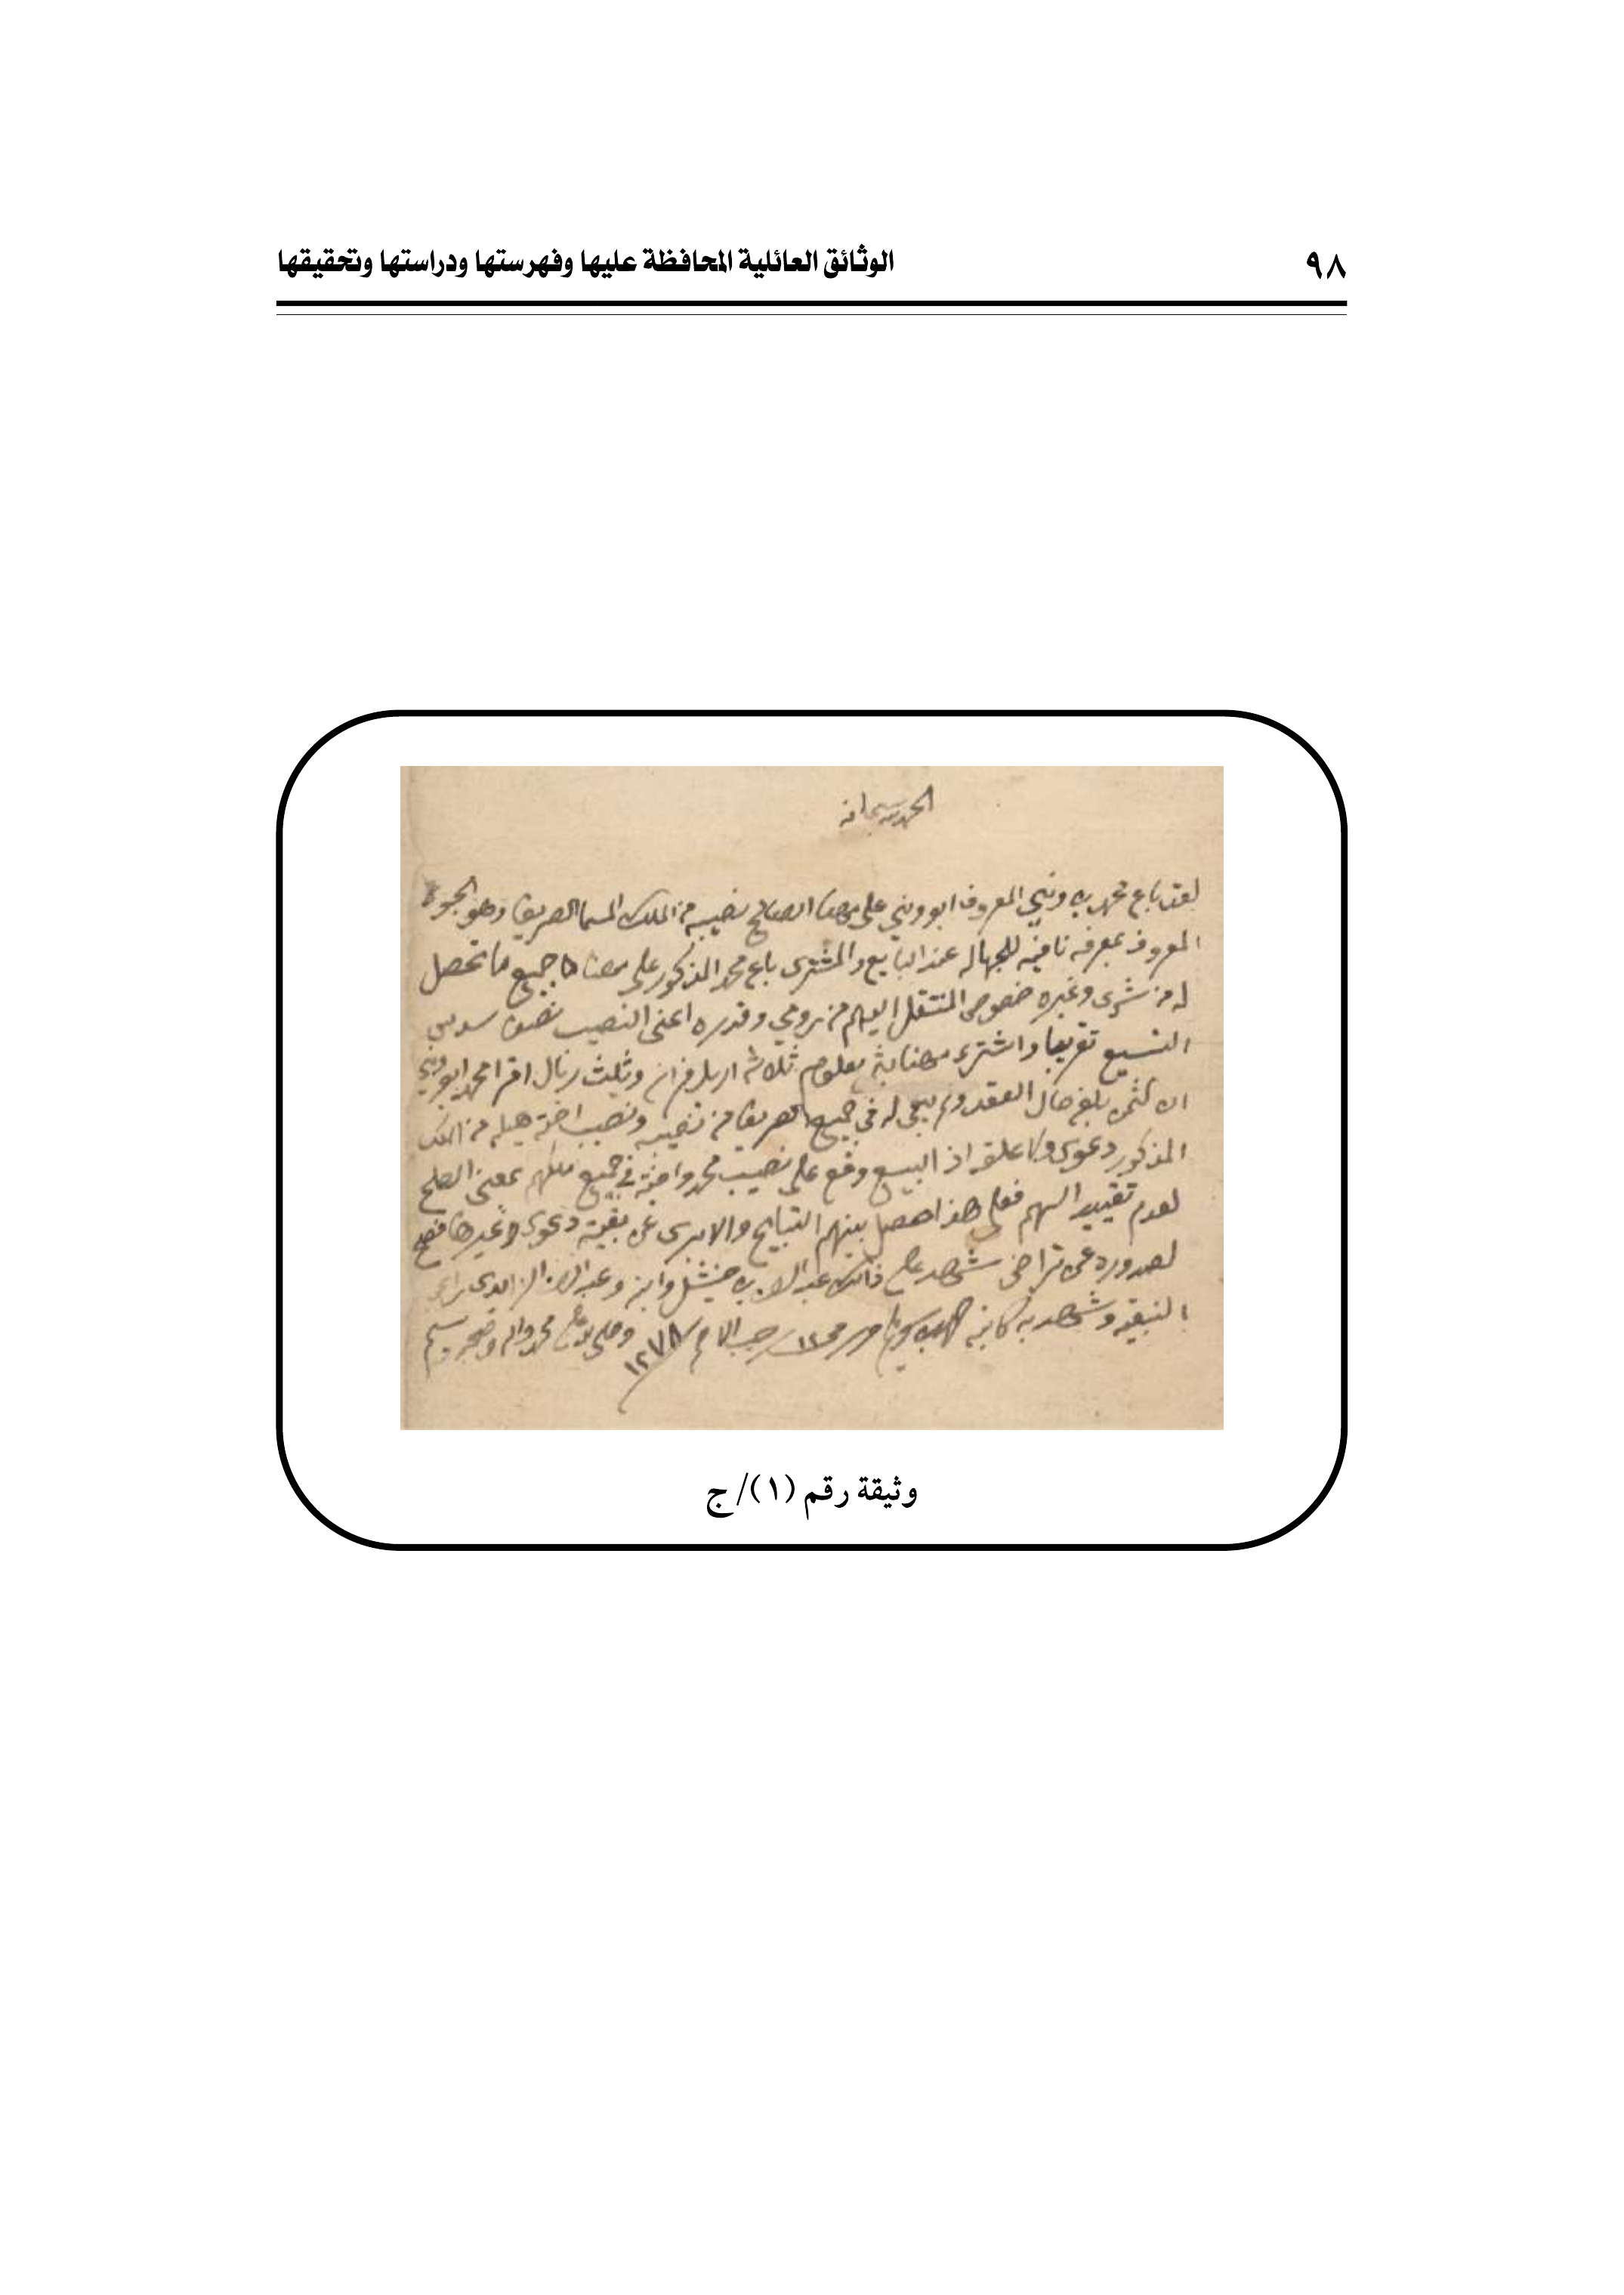 ٩٨
الوثائق العائلية المحافظة عليها وفهرستها ودراستها وتحقيقها
الحمد لله سبحانه
لقد باع محمد بن ونيي المعروف ابو ونيي على مهنا الصالح نصيبه من الملك المسما الصريف وهو
المعروف بمعرفه نافيه للجهاله عند البايع والمشترى باع محمد المذكور على مهنا جميع ما تحصل
له من شرى وغيره خصوص المنتقل اليهم من رومي وقدره اعنى النصيب نصف سدس
التسيع تقريبا واشترى مهنا بثمن معلوم ثلاثه اريل فران وثلث ريال اقر محمد ابو ونيي
ان الثمن بلغه حال العقد ولم يبقى له في جميع الصريف من نصيبه ونصيب اخته هيله من الملك
المذكور دعوى ولا علقه اذ البيع وقع على نصيب محمد واخته في جميع ملكهم بمعنى الصلح
لعدم تقييد السهم فعلى هذا حصل بينهم التبايح والابرى عن بقية دعوى وغيرها فصح
لصدوره عن تراضى شهد على ذالك عبد الله بن حنيشل وابنه وعبد الله الزايدى راعى
النبقيه وشهد به كاتبه رجب ١٢٧٨ وصلى الله على محمد واله وصحبه وسلم
وثيقة رقم (١)/ ج